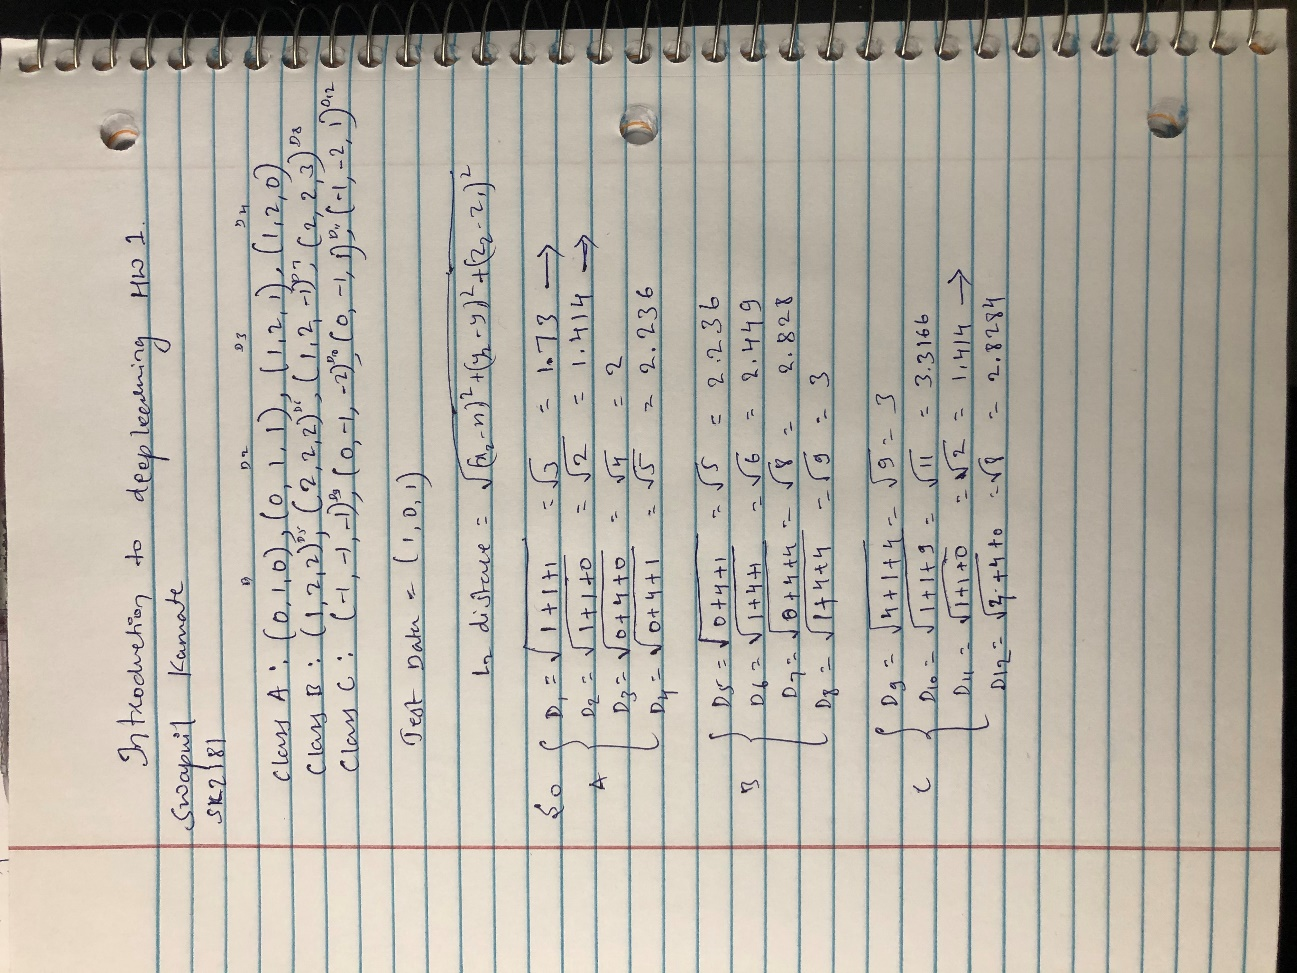 Introduction to deep learning HW 1.
Swapnil Kamate
sk2181
D D2 D3 D4
Class A : (0,1,0), (0,1,1), (1,2,1), (1,2,0)
Class B : (1,2,2)D5, (2,2,2)D6, (1,2,-1)D7, (2,2,3)D8
Class C : (-1,-1,-1)D9, (0,-1,-2)D10, (0,-1,1)D11, (-1,-2,1)D12
Test Data = (1,0,1)
L2 distance = √(x2-x)²+(y2-y)²+(z2-z1)²
So { D1 = √1+1+1 = √3 = 1.73 →
A D2 = √1+1+0 = √2 = 1.414 →
D3 = √0+4+0 = √4 = 2
D4 = √0+4+1 = √5 = 2.236
{ D5 = √0+4+1 = √5 = 2.236
B D6 = √1+4+1 = √6 = 2.449
D7 = √0+4+4 = √8 = 2.828
D8 = √1+4+4 = √9 = 3
{ D9 = √4+1+4 = √9 = 3
C D10 = √1+1+9 = √11 = 3.3166
D11 = √1+1+0 = √2 = 1.414 →
D12 = √4+4+0 = √8 = 2.8284